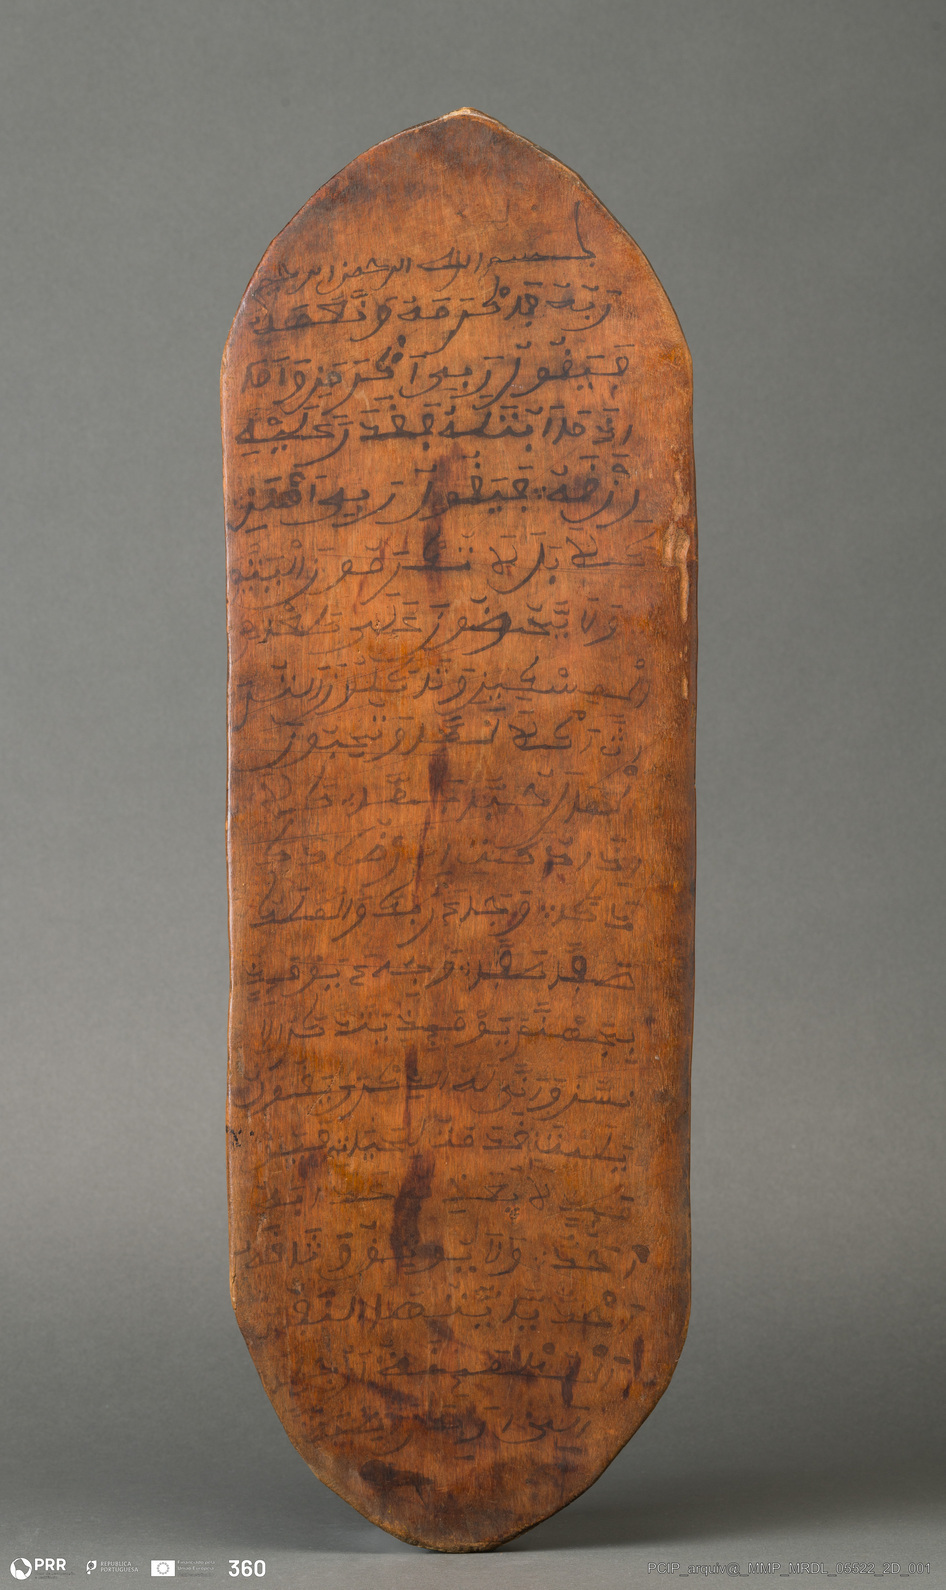 بسم الله الرحمن الرحيم
ربه فأكرمه ونعمه
فيقول ربي أكرمن وأما
إذا ما ابتله فقدر عليه
رزقه فيقول ربي أهنن
كلا بل لا تكرمون اليتيم
ولا تحضون على طعام
المسكين وتأكلون التر
اث أكلا لما وتحبون
المال حبا جما كلا
إذا دكت الأرض دكا
دكا وجاء ربك والملك
صفا صفا وجاىء يومئذ
بجهنم يومئذ يتذكر الا
نسن وأنى له الذكرى يقول
يليتني قدمت لحياتي فيو
مئذ لا يعذب عذابه
أحد ولا يوثق وثاقه
أحد يأيتها النفس
المطمئنة
إلى
PRR
REPÚBLICA PORTUGUESA
360
PCIP_arquiv@_MMP_MRDL_05522_2D_001